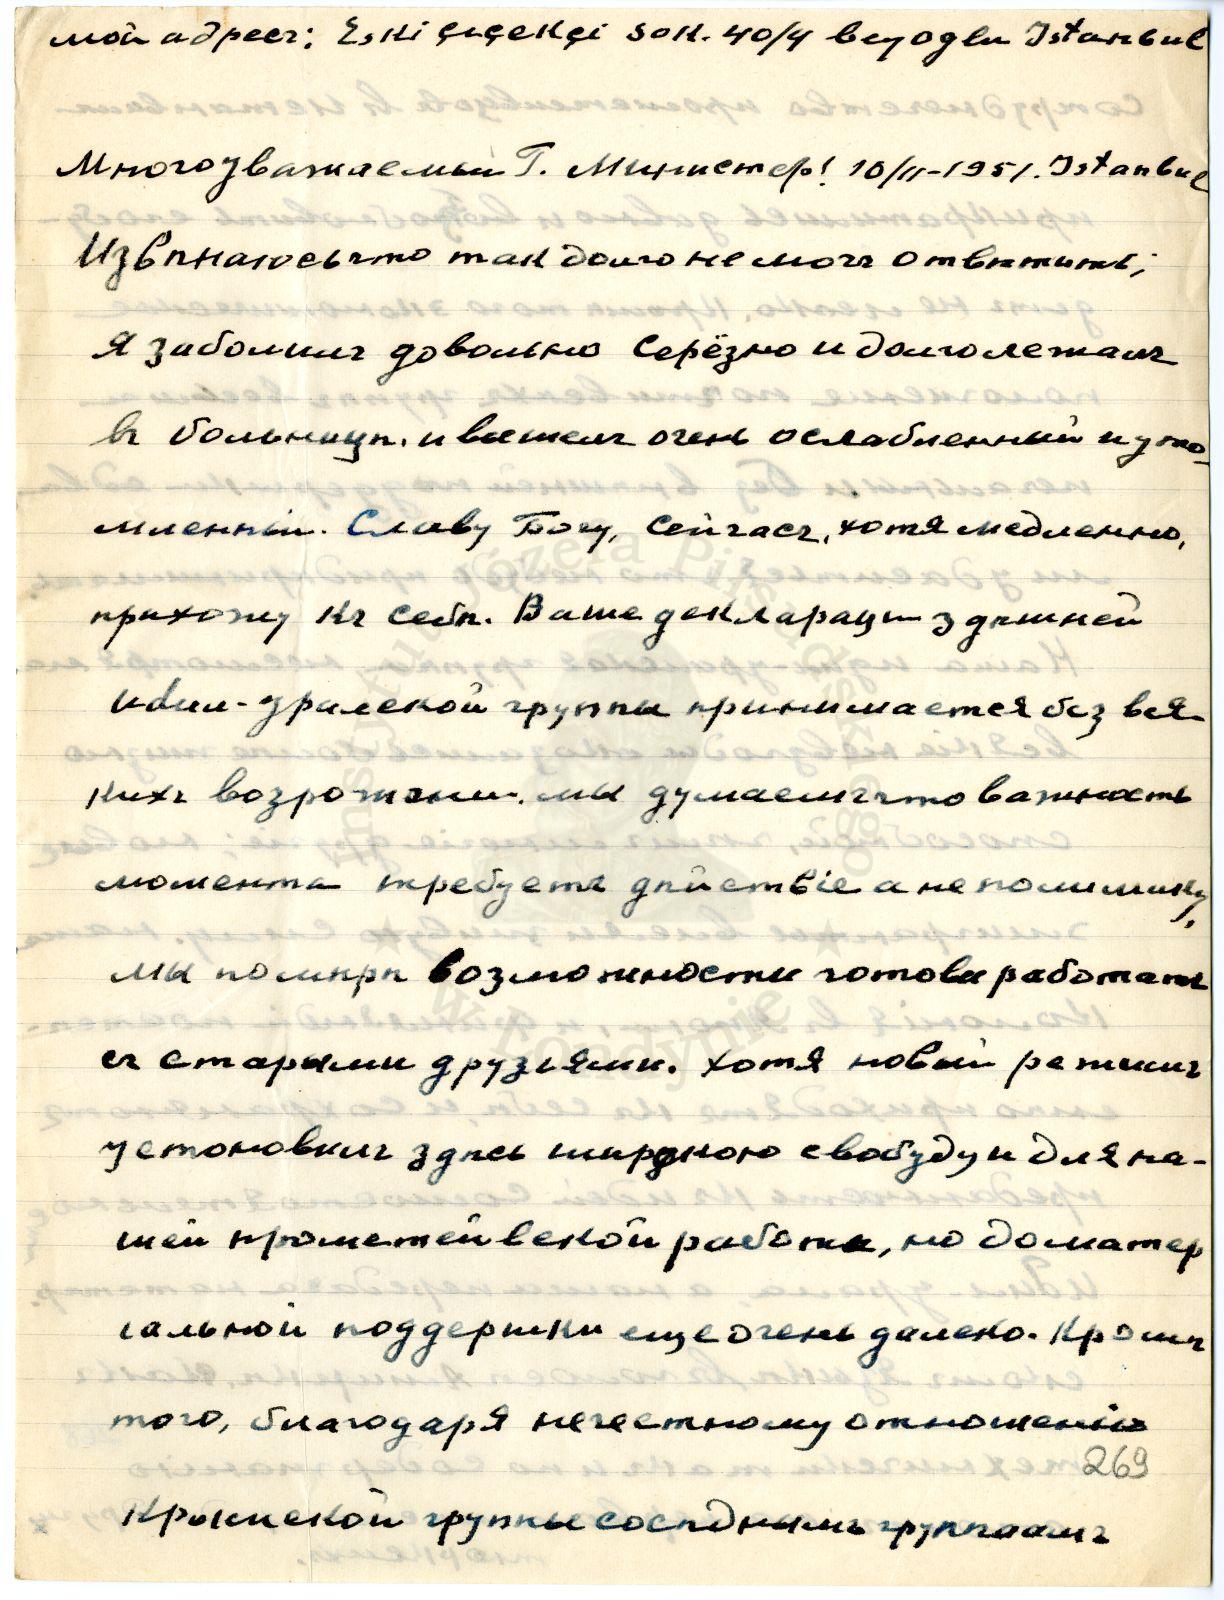 мой адресъ: Eski çiçekçi sok. 40/4 beyoglu Istanbul
Многоуважаемый Г. Министер! 10/II-1951. Istanbul
Извѣнаюсь что так долго не могъ отвѣтить;
я заболилъ довольно серёзно и долго лежалъ
въ больницѣ. и вышелъ очень ослабленный и уто-
мленный. Славу Богу, сейчасъ, хотя медленно,
прихожу къ себѣ. Ваше декларации здѣшней
идил-уралской группы принимается без вся-
кихъ возрожении. мы думаемъ что важность
момента требуетъ дѣйствіе а не полимику,
мы по мѣрѣ возможности готовы работать
съ старыми друзьями. хотя новый режимъ
устоновилъ здѣсь широкою свободу и для на-
шей прометейвской работы, но до матер
іальной поддержки еще очень далеко. Кромѣ
того, благодаря нечестному отношенію
Крымской группы сосѣднымъ группамъ
269
Instytut Józefa Piłsudskiego
w Londynie